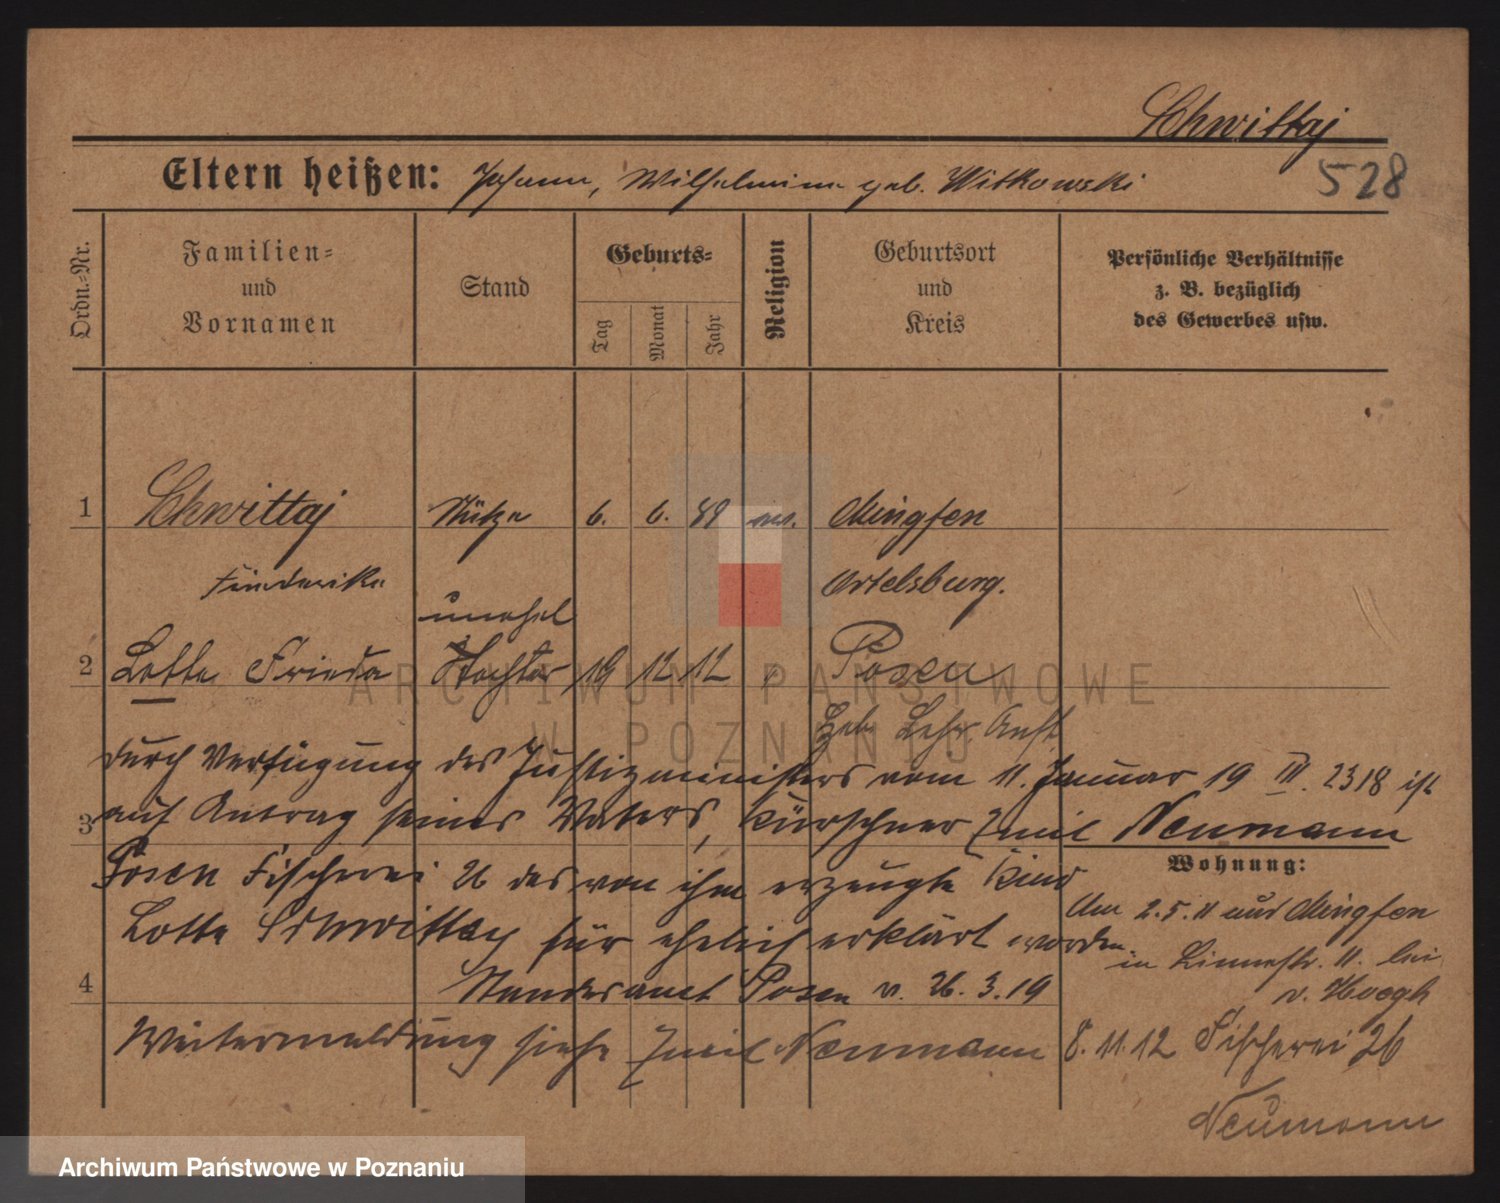 Schwittaj
528
Eltern heißen: Johann, Wilhelmine geb. Witkowski
Ordn.-Nr.
Familien- und Vornamen
Stand
Geburts-
Tag
Monat
Jahr
Religion
Geburtsort und Kreis
Persönliche Verhältnisse
z. B. bezüglich
des Gewerbes usw.
1 Schwittaj Stütze 6. 6. 89 ev. Mingfen
Friederike Ortelsburg.
unehel
2 Lotte Frieda Tochter 19 12 12 Posen
Heb. Lehr. Anst
durch Verfügung des Justizministers vom 11. Januar 19 III. 2318 ist
3 auf Antrag seines Vaters, Kürschner Emil Neumann
Posen Fischerei 26 das von ihm erzeugte Kind
Lotte Schwittay für ehelich erklärt worden.
4 Standesamt Posen v. 26. 3. 19
Weitermeldung siehe Emil Neumann
Wohnung:
Am 2.5.11 aus Mingfen
in Linnestr. 11. bei
v. Hoegh
8.11.12 Fischerei 26
Neumann
ARCHIWUM PAŃSTWOWE
W POZNANIU
Archiwum Państwowe w Poznaniu